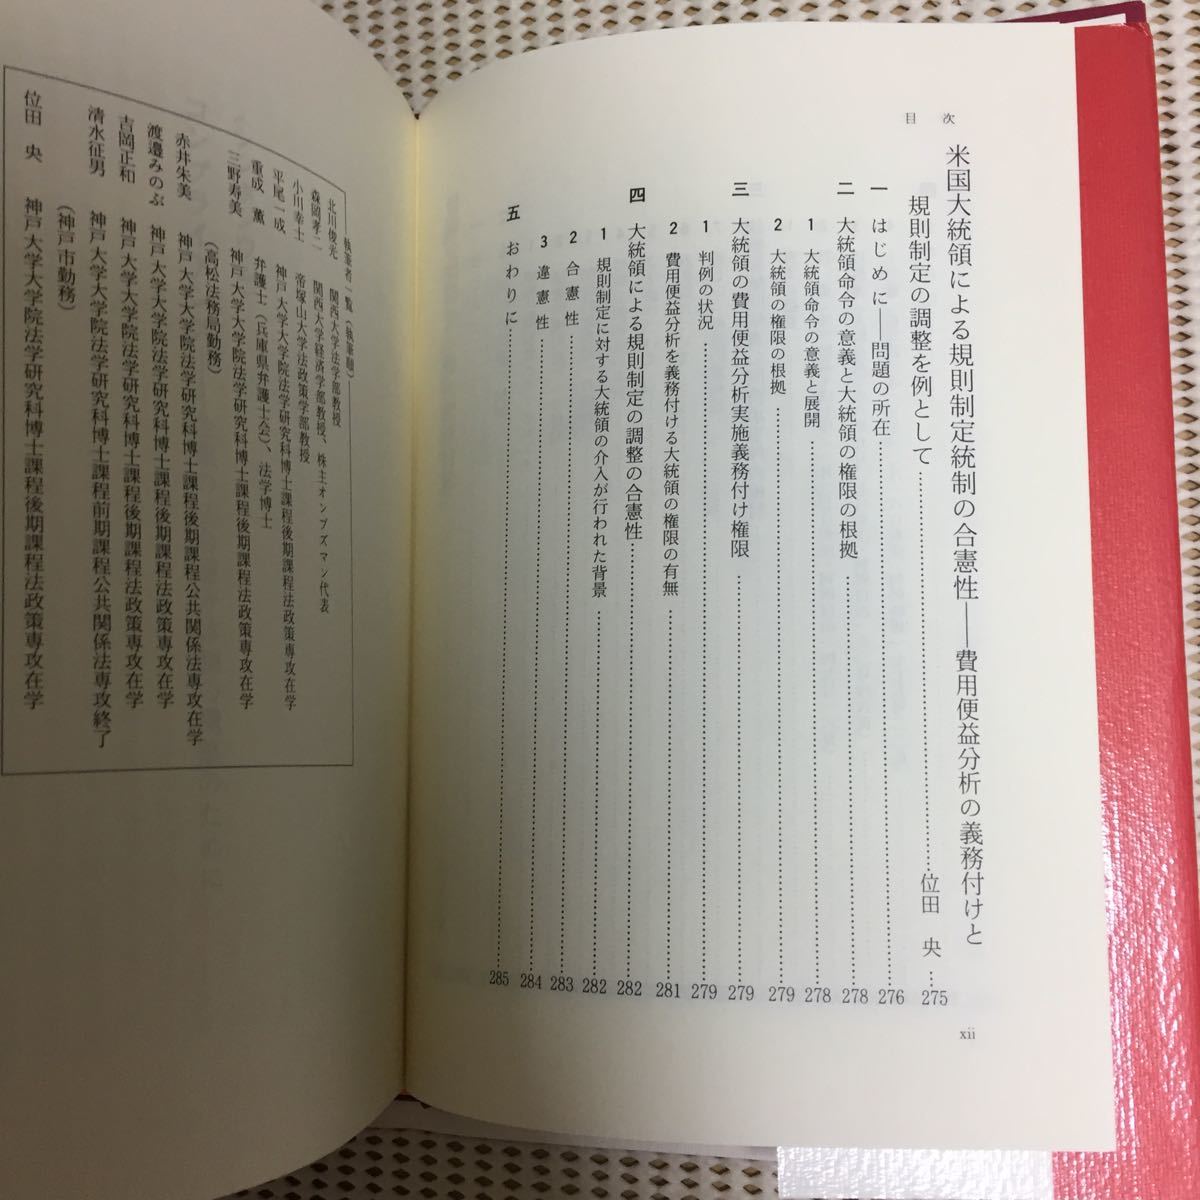 目　次
米国大統領による規則制定統制の合憲性――費用便益分析の義務付けと
規則制定の調整を例として……位田　央…275
一　はじめに――問題の所在……276
二　大統領命令の意義と大統領の権限の根拠……278
1　大統領命令の意義と展開……278
2　大統領の権限の根拠……279
三　大統領の費用便益分析実施義務付け権限……279
1　判例の状況……279
2　費用便益分析を義務付ける大統領の権限の有無……281
四　大統領による規則制定の調整の合憲性……282
1　規則制定に対する大統領の介入が行われた背景……282
2　合憲性……283
3　違憲性……284
五　おわりに……285
xii
執筆者一覧（執筆順）
北川俊光　関西大学法学部教授
森岡孝二　関西大学経済学部教授、株主オンブズマン代表
小川幸士　帝塚山大学法政策学部教授
平尾一成　神戸大学大学院法学研究科博士課程後期課程法政策専攻在学
重成　薫　弁護士（兵庫県弁護士会）、法学博士
三野寿美　神戸大学大学院法学研究科博士課程後期課程法政策専攻在学
（高松法務局勤務）
赤井朱美　神戸大学大学院法学研究科博士課程後期課程公共関係法専攻在学
渡邉みのぶ　神戸大学大学院法学研究科博士課程後期課程法政策専攻在学
吉岡正和　神戸大学大学院法学研究科博士課程後期課程法政策専攻在学
清水征男　神戸大学大学院法学研究科博士課程前期課程公共関係法専攻終了
（神戸市勤務）
位田　央　神戸大学大学院法学研究科博士課程後期課程法政策専攻在学